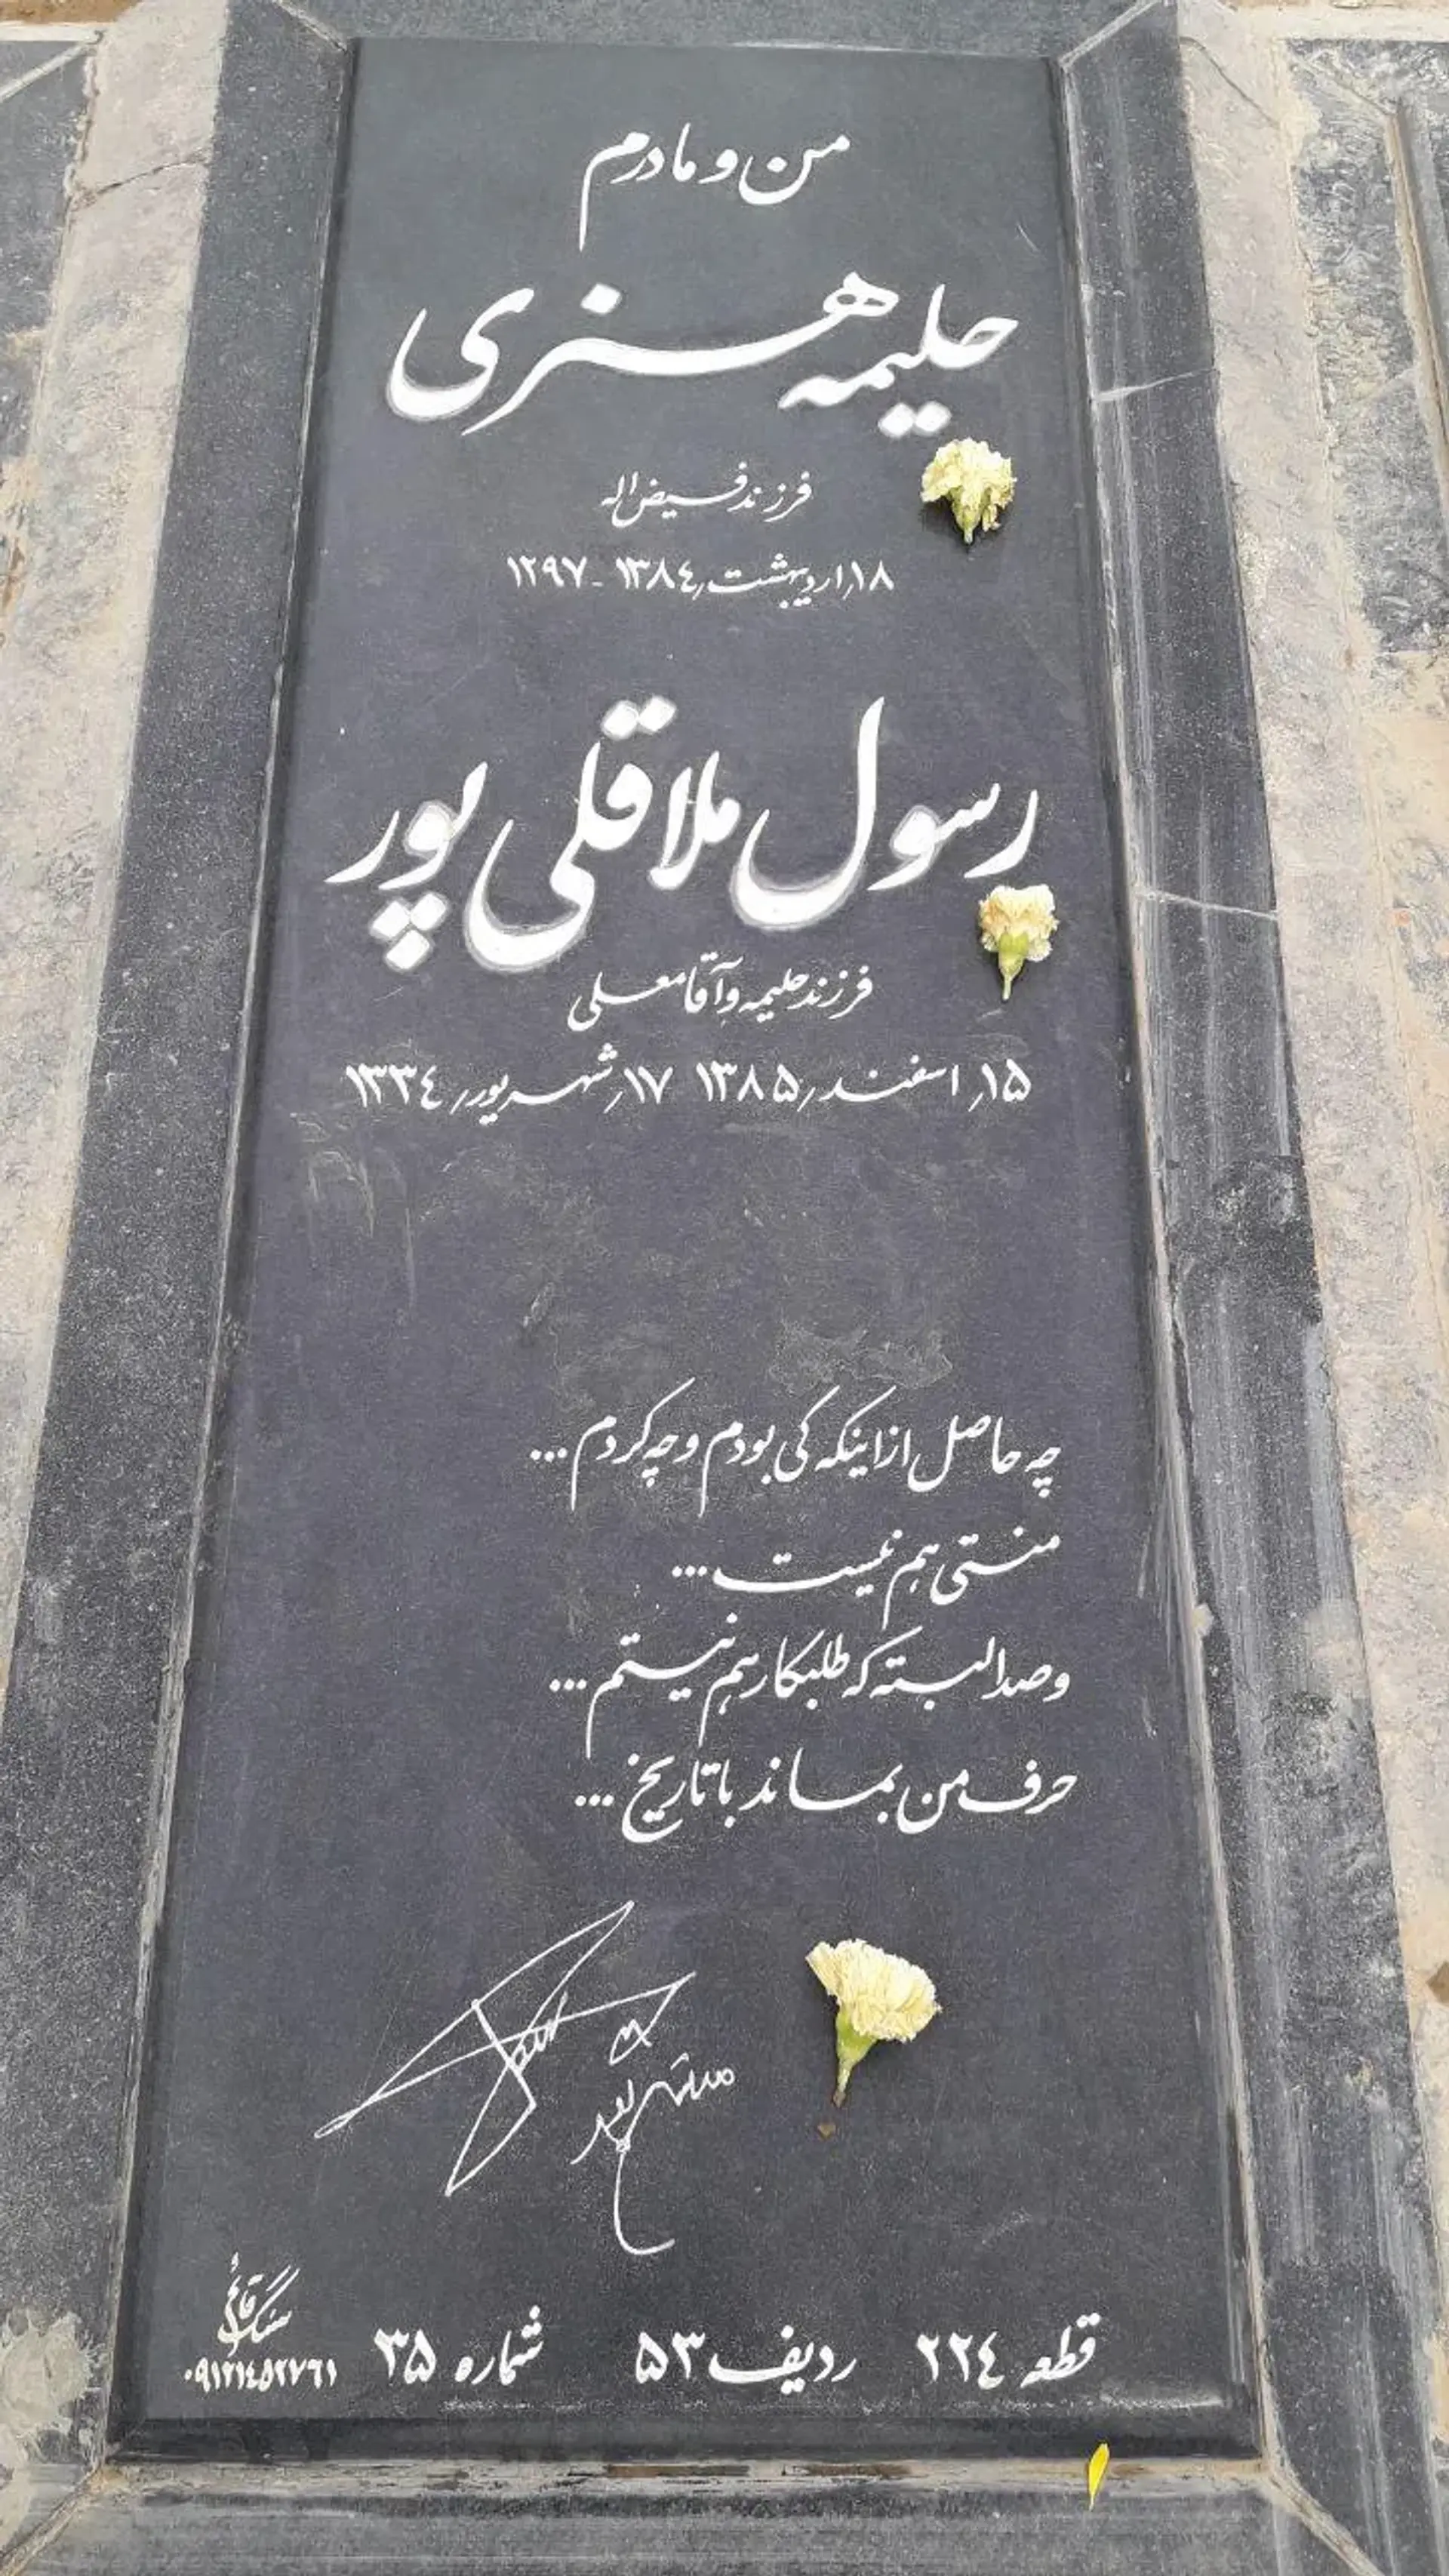 من و مادرم
حلیمه هنری
فرزند فیض اله
۱۸/اردیبهشت/۱۳۸۴ - ۱۲۹۷
رسول ملاقلی پور
فرزند حلیمه و آقا معلی
۱۵/ اسفند/ ۱۳۸۵ ۱۷/ شهریور/ ۱۳۳۴
چه حاصل از اینکه کی بودم و چه کردم ...
منتی هم نیست ...
و صد البته که طلبکار هم نیستم ...
حرف من بماند با تاریخ ...
قطعه ۲۲۴ ردیف ۵۳ شماره ۳۵
سنگ قائم
۰۹۱۲۱۴۵۲۷۶۱